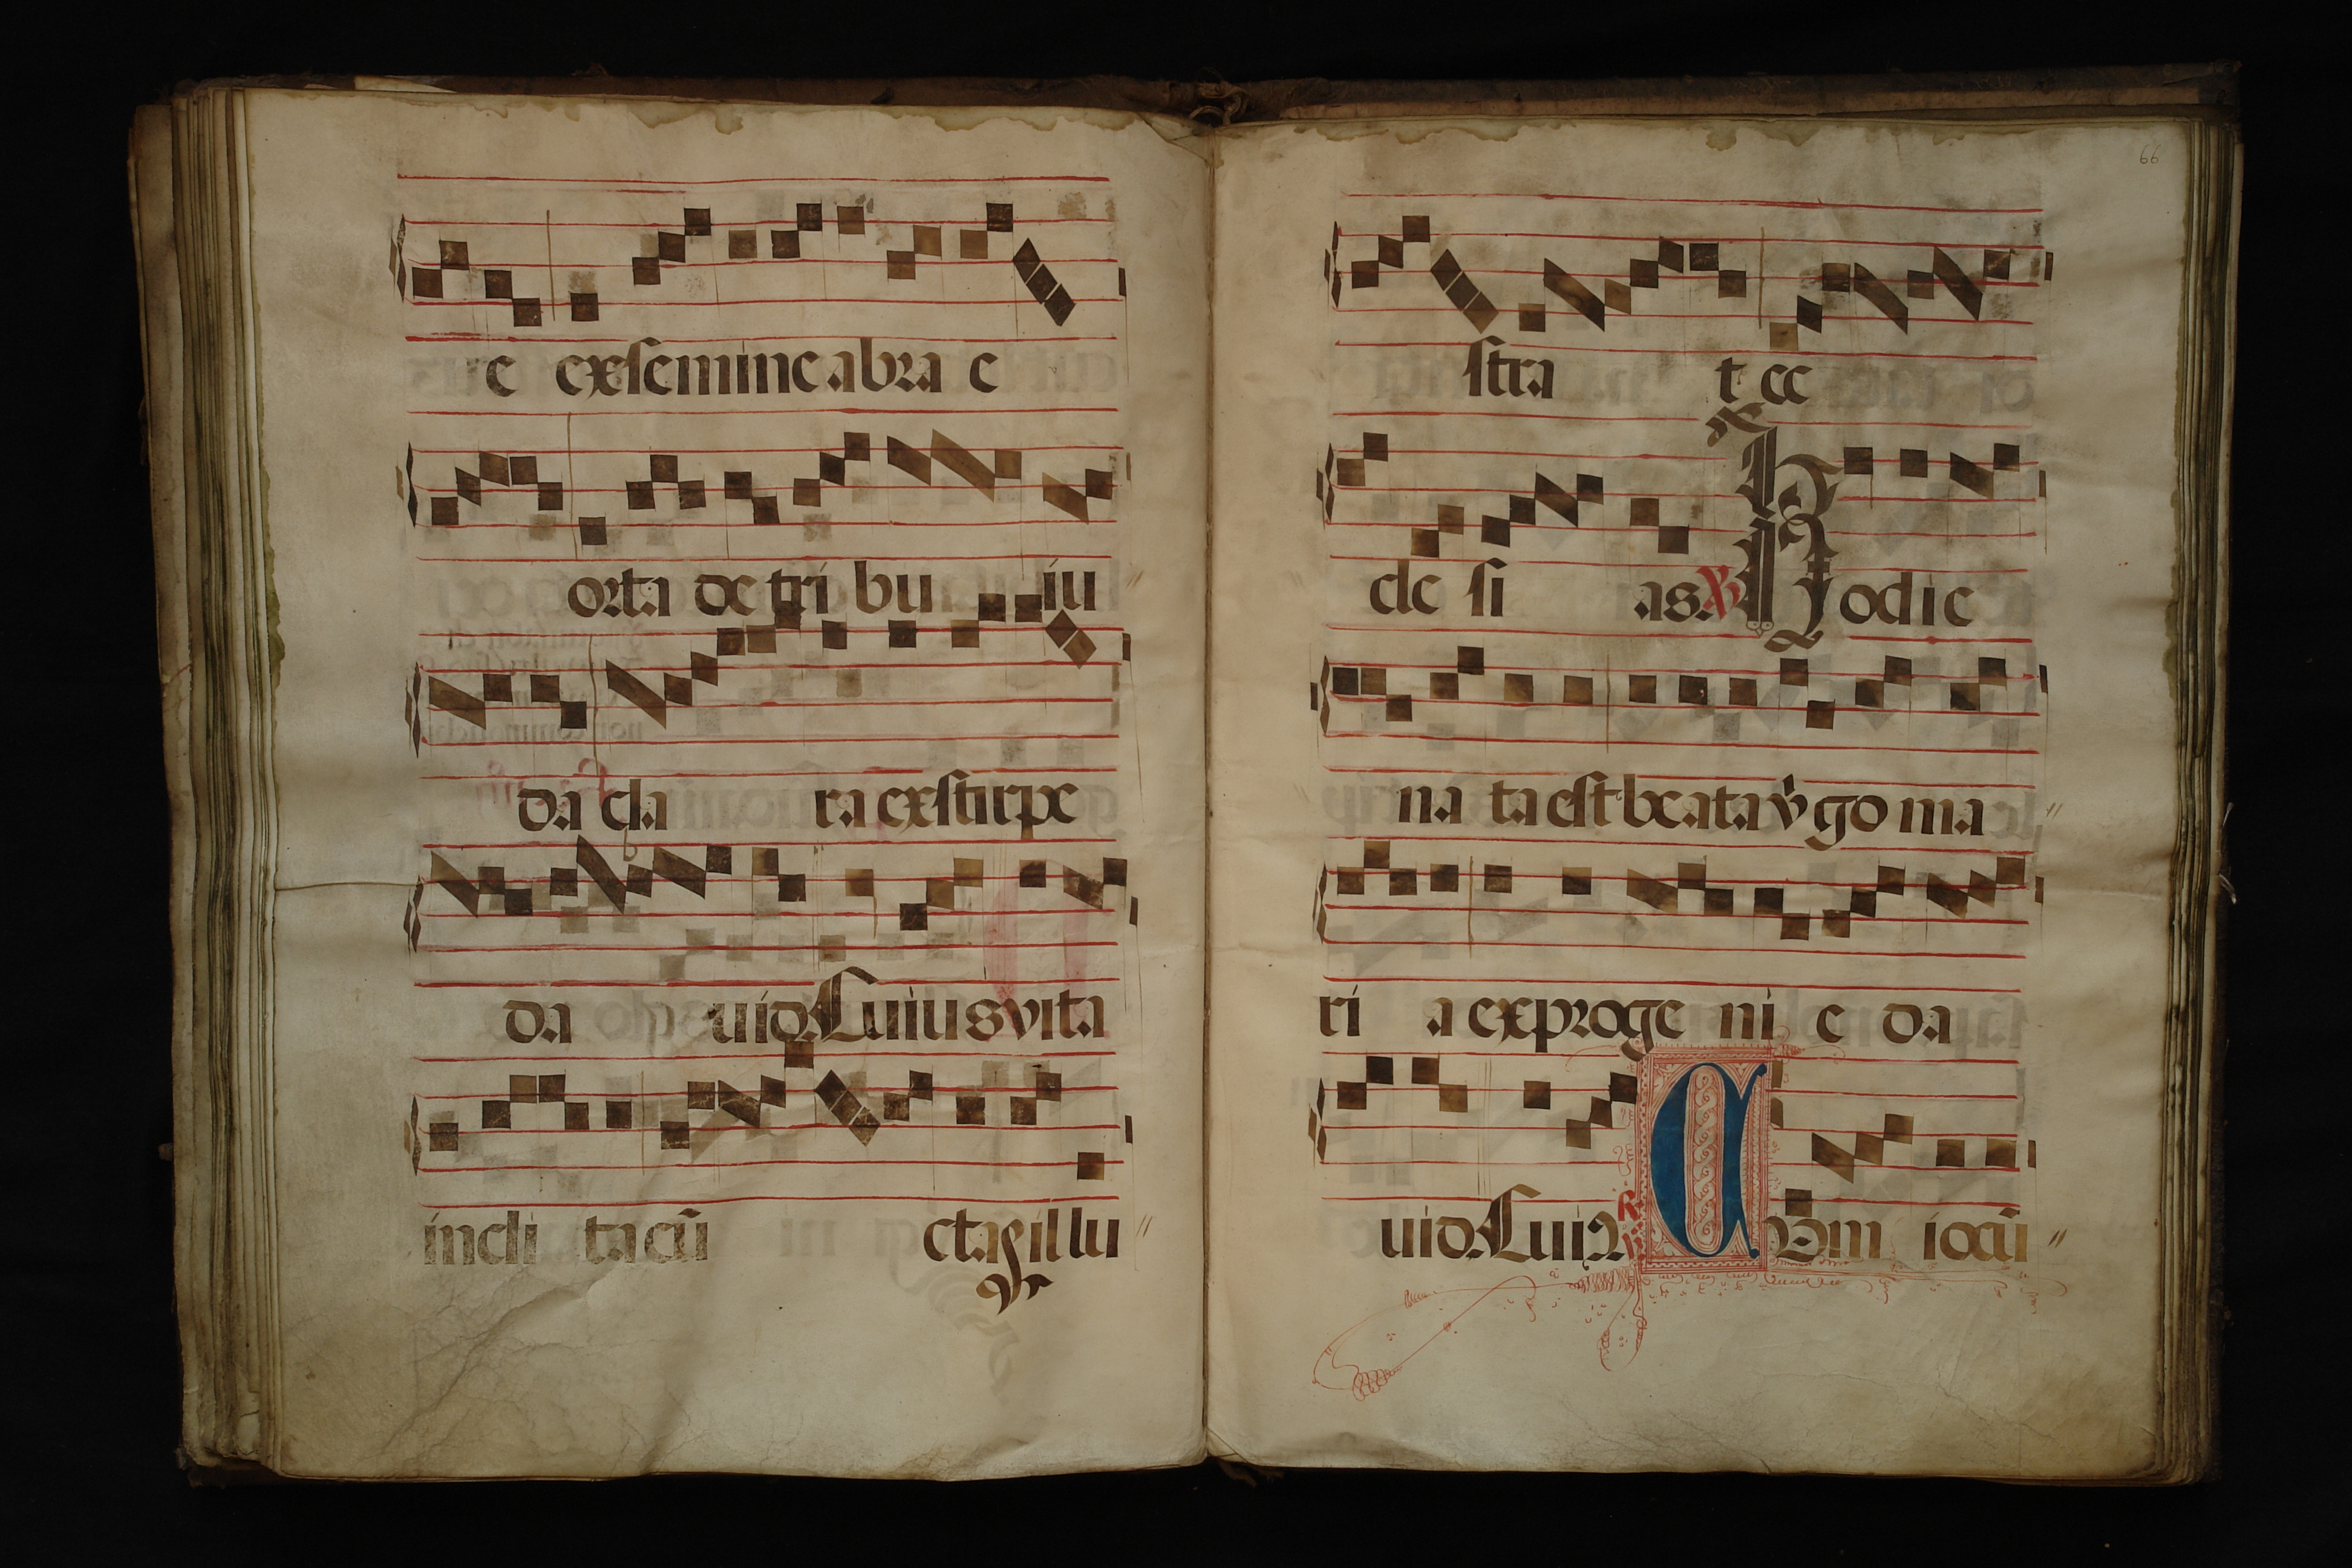 e exsemine abra e
orta de tri bu iu
da cla ra exstirpe
da uid Cuius vita
incli ta cū cta illu
66
stra t ec
cle si as. ℣ Hodie
na ta est beata v̄go ma
ri a exproge ni e da
uid. Cui ꝰ ℟
℣ Cū iocū